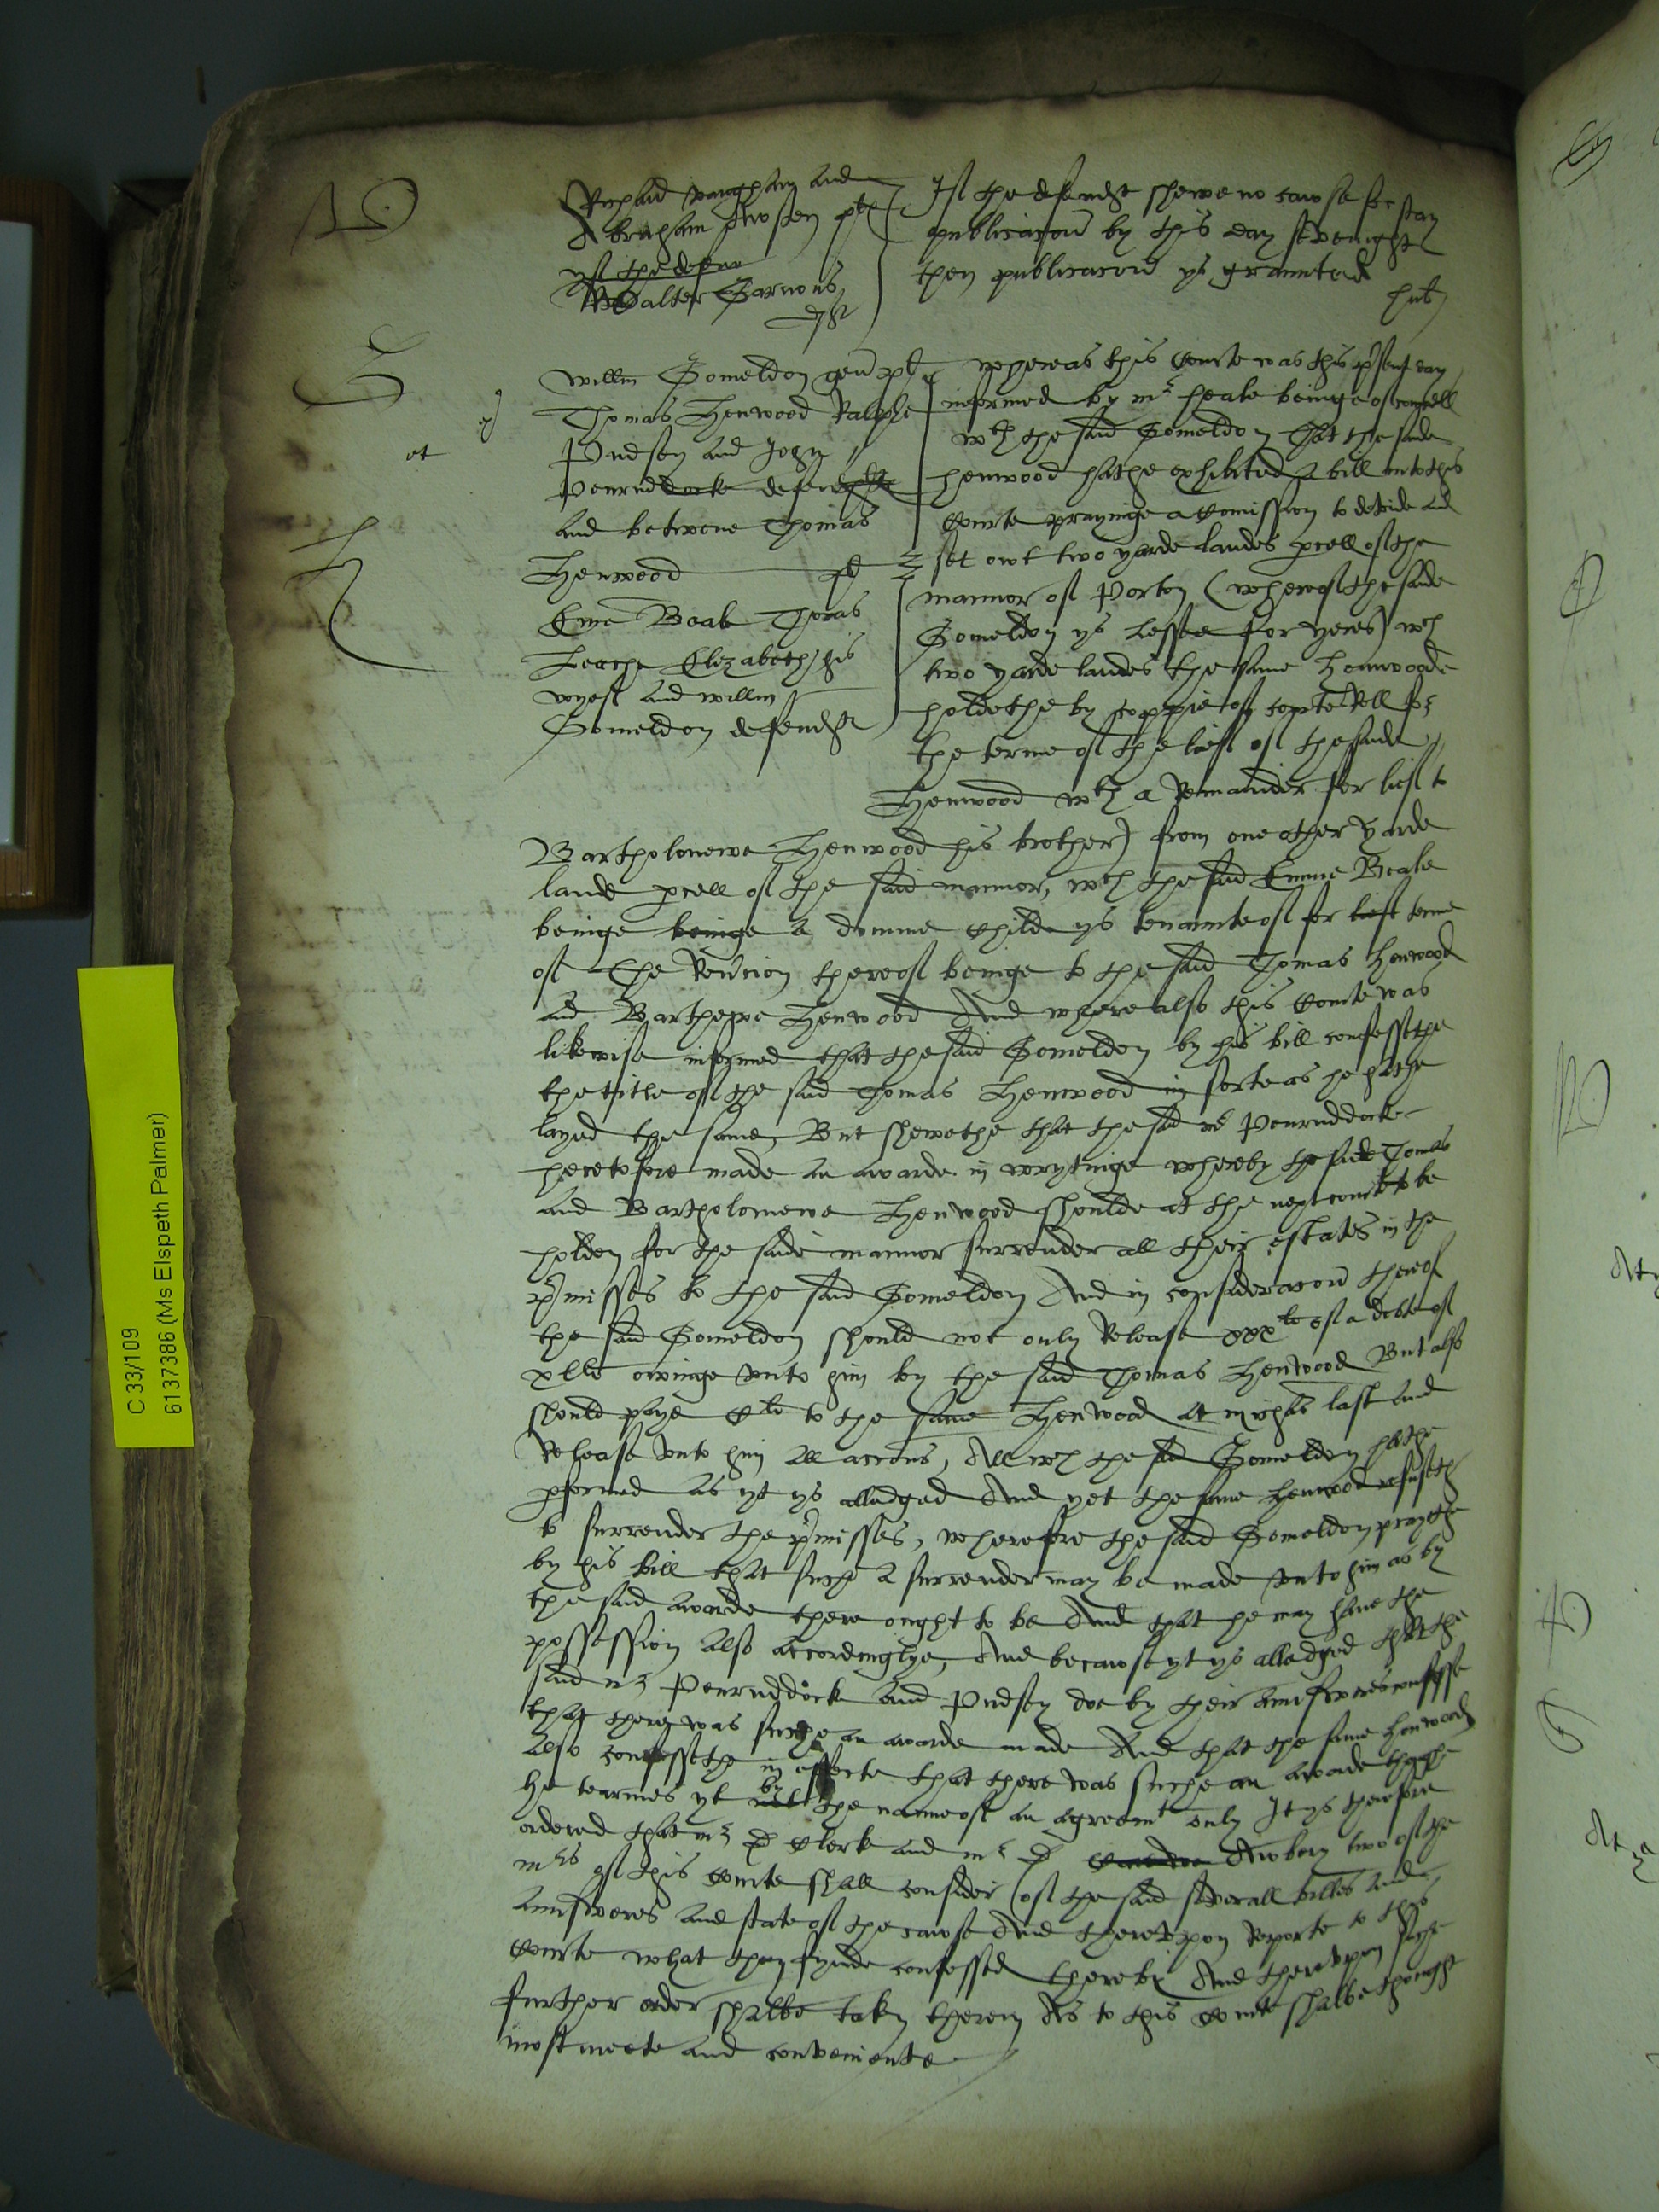 Richard Vaughan and
Abraham pltes
yf the defend
Walter defts
Yf the defendt shewe no cawse for stay
publicacon by this day sevenight
then publicacon ys grauntid
Willm Gomeldon gen plt
Thomas Henwood Raulphe
Pudsey and John
Penruddocke defendtes
and betwene Thomas
Henwood plt
Eme Beale Thomas
Elizabeth his
wyef and Willm
Gomeldon defendtes
et
Whereas this Courte was this psent day
informed by mr heale beinge of councell
wth the said Gomeldon That the saide
henwood hathe exhibited a bill into this
Courte prayinge a Comission to devide and
set owt two yarde landes pcell of the
mannor of Porton (whereof the saide
Gomeldon ys Lessee for yeres) wch
two yarde landes the same Henwoode
holdethe by coppie of courte Roll for
the terme of the lief of the saide
Henwood wth a Remainder for lief to
Bartholomewe Henwood his brother) from one other yarde
lande pcell of the said mannor, wch the said Emme Beale
beinge beinge a domme Childe ys tenaunte of for lief terme
of The Revercion thereof beinge to the said Thomas Henwood
and Barthewe Henwood And where also this Courte was
likewise informed that the said Gomeldon by his bill confessethe
the title of the said Thomas Henwood in sorte as he hathe
layed the same, But shewethe that the said mr Penruddocke
heretofore made an awarde in wrytinge whereby the saide Thomas
and Bartholomewe Henwood shoulde at the next courte to be
holden for the saide mannor surrender all their estates in the
pmisses to the said Gomeldon And in consideracon therof
the said Gomeldon should not only Release xxxli of a debte of
xlli owinge unto him by the said Thomas Henwood But also
should paye Cli to the same Henwood at michas last and
Release unto him all accons, All wch the said Gomeldon hathe
pformed as yt ys alledged And yet the same Henwood refuseth
to surrender the pmisses, wherefore the said Gomeldon praythe
by his bill that suche a surrender may be made unto him as by
the said awarde there ought to be And that he may have the
possession also accordinglye, And because yt ys alledged that the
said mr Penruddock and Pudsey doe by their aunsweres confesse
that there was suche an awarde made And that the same Henwood
also confessethe in effecte that there was suche an awarde thoughe
he tearmes yt by the name of an agreemt only It ys therefore
ordered that mr D Clerk and mr D Awbery two of the
mrs of this Courte shall consider of the said severall billes and
aunsweres and state of the cawse And thereupon Reporte to this
Courte what they fynde confessed therebi And thereupon suche
further order shalbe taken therein As to this Courte shalbe thought
most meete and conveniente
C 33/109
6137386 (Ms Elspeth Palmer)